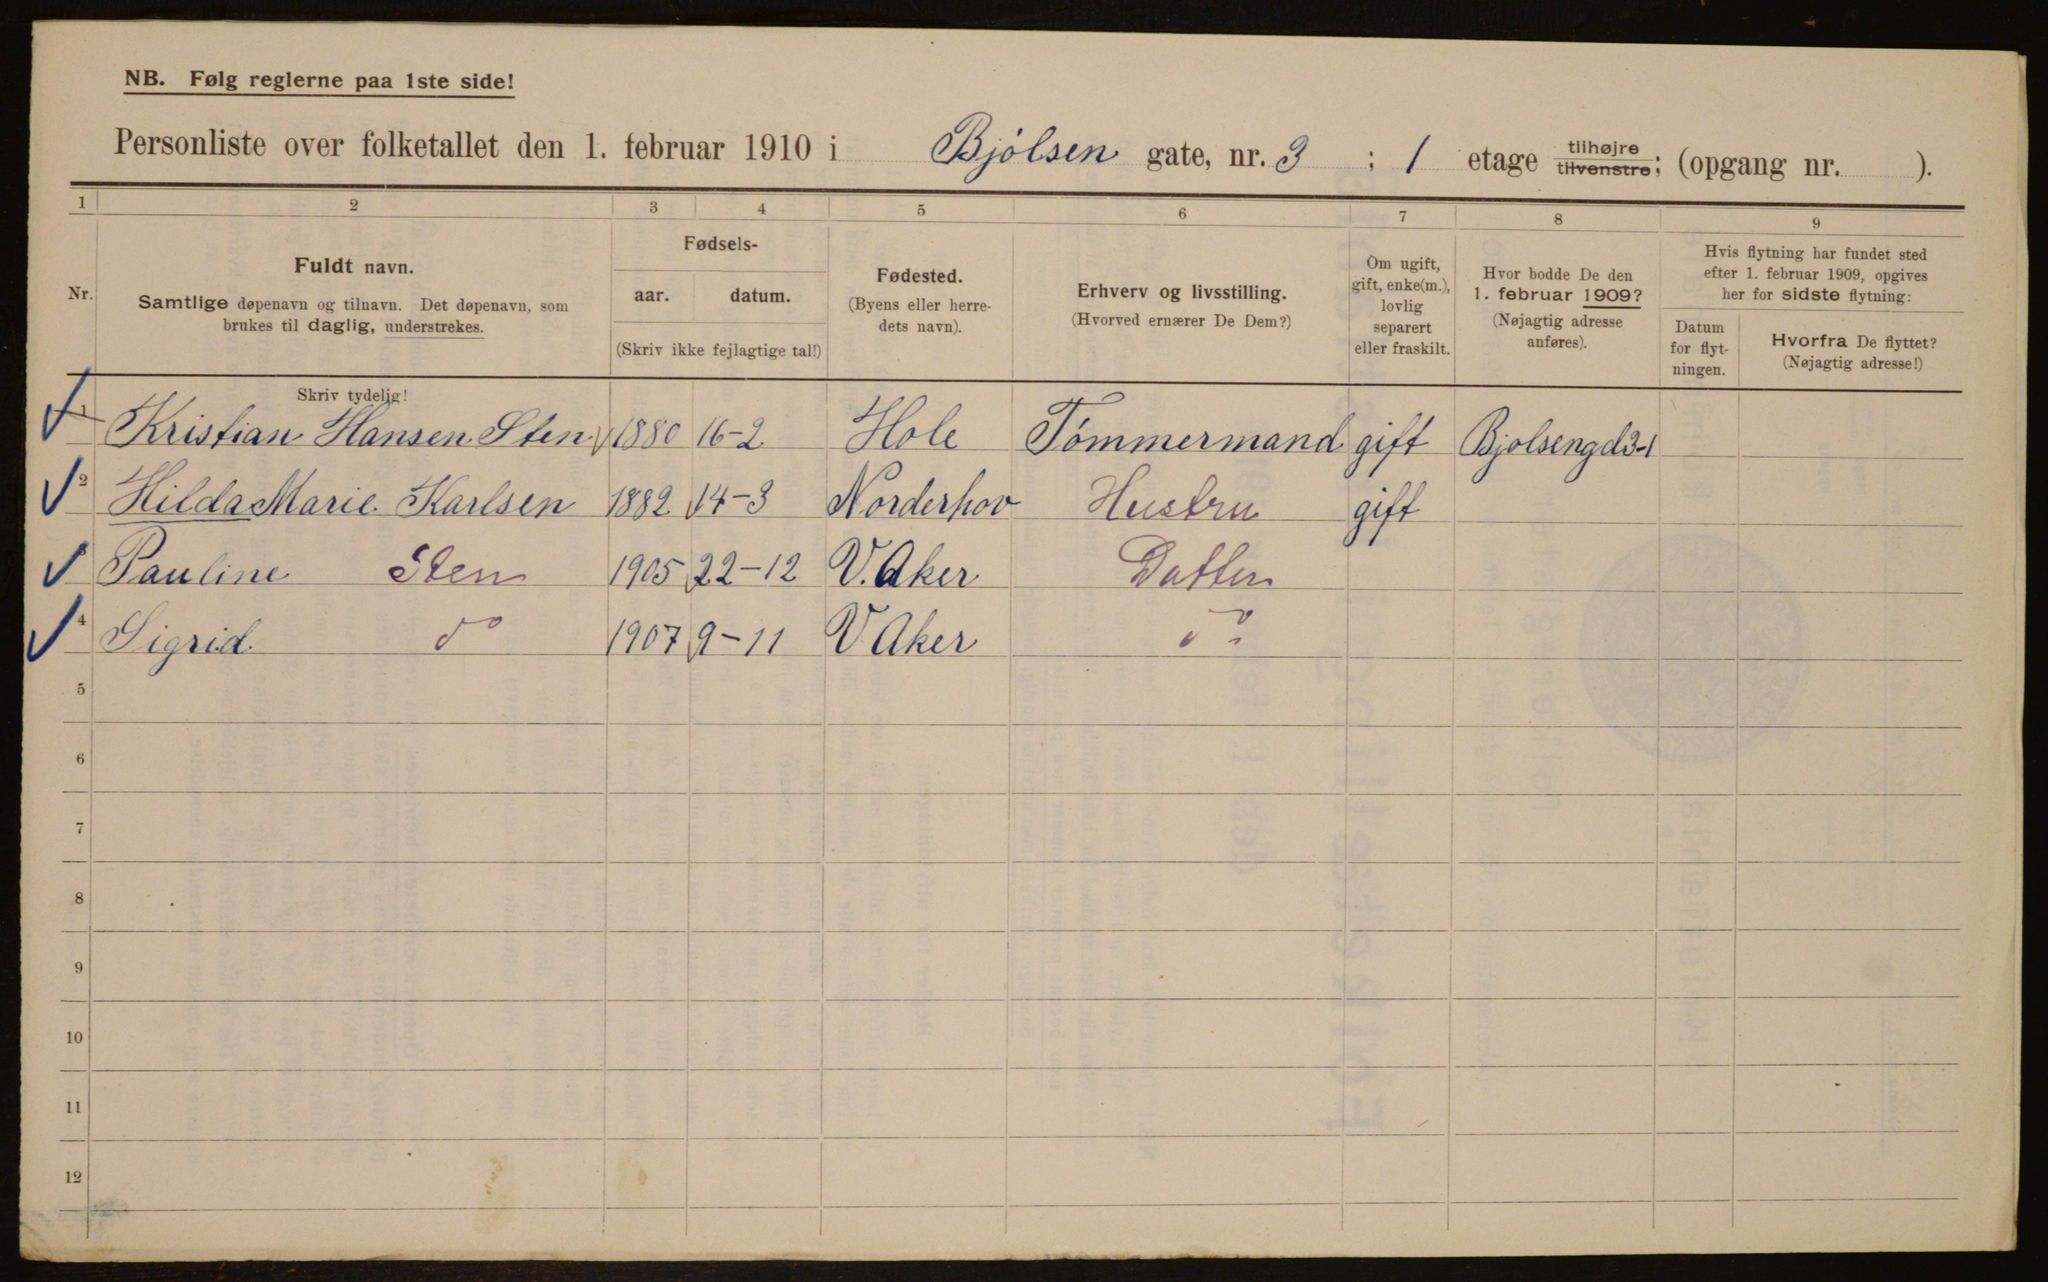 NB. Følg reglerne paa 1ste side!
Personliste over folketallet den 1. februar 1910 i Bjölsen gate, nr. 3 ; 1 etage tilhøjre tilvenstre; (opgang nr. ).
1 2 3 4 5 6 7 8 9
Nr.
Fuldt navn.
Samtlige døpenavn og tilnavn. Det døpenavn, som
brukes til daglig, understrekes.
Fødsels-
aar. datum.
(Skriv ikke fejlagtige tal!)
Fødested.
(Byens eller herre-
dets navn).
Erhverv og livsstilling.
(Hvorved ernærer De Dem?)
Om ugift,
gift, enke(m.),
lovlig
separert
eller fraskilt.
Hvor bodde De den
1. februar 1909?
(Nøjagtig adresse
anføres).
Hvis flytning har fundet sted
efter 1. februar 1909, opgives
her for sidste flytning:
Datum
for flyt-
ningen.
Hvorfra De flyttet?
(Nøjagtig adresse!)
Skriv tydelig!
1 Kristian Hansen Sten 1880 16-2 Hole Tömmermand gift Bjolsengd3-1
2 Hilda Marie Karlsen 1882 14-3 Norderhov Hustru gift
3 Pauline Sten 1905 22-12 V. Aker Datter
4 Sigrid do 1907 9-11 V Aker do
5
6
7
8
9
10
11
12